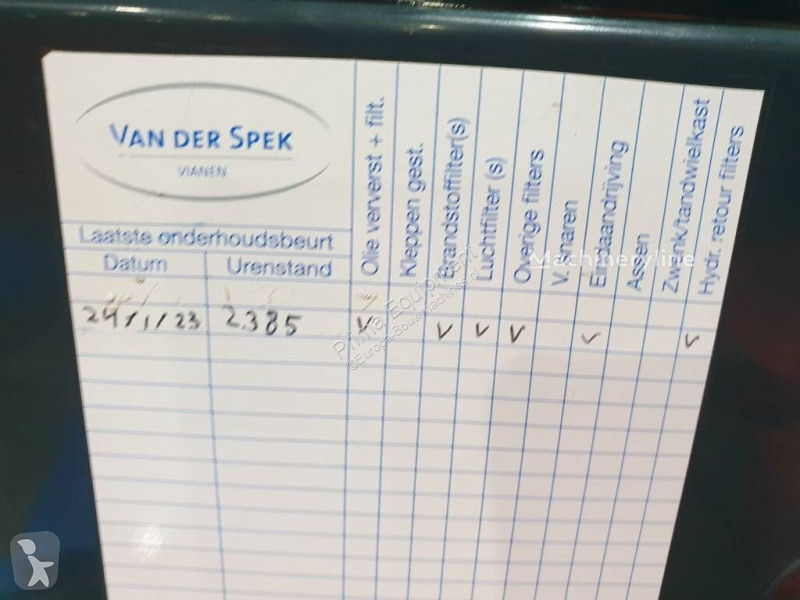 VAN DER SPEK
VIANEN
Laatste onderhoudsbeurt
Datum
Urenstand
Olie ververst + filt.
Kleppen gest.
Brandstoffilter(s)
Luchtfilter (s)
Overige filters
V. snaren
Eindaandrijving
Assen
Zwenk/tandwielkast
Hydr. retour filters
24/1/23 2385 V V V V V V
Prima Equipment
©Europa-Bouwmachines.nl
Machineryline